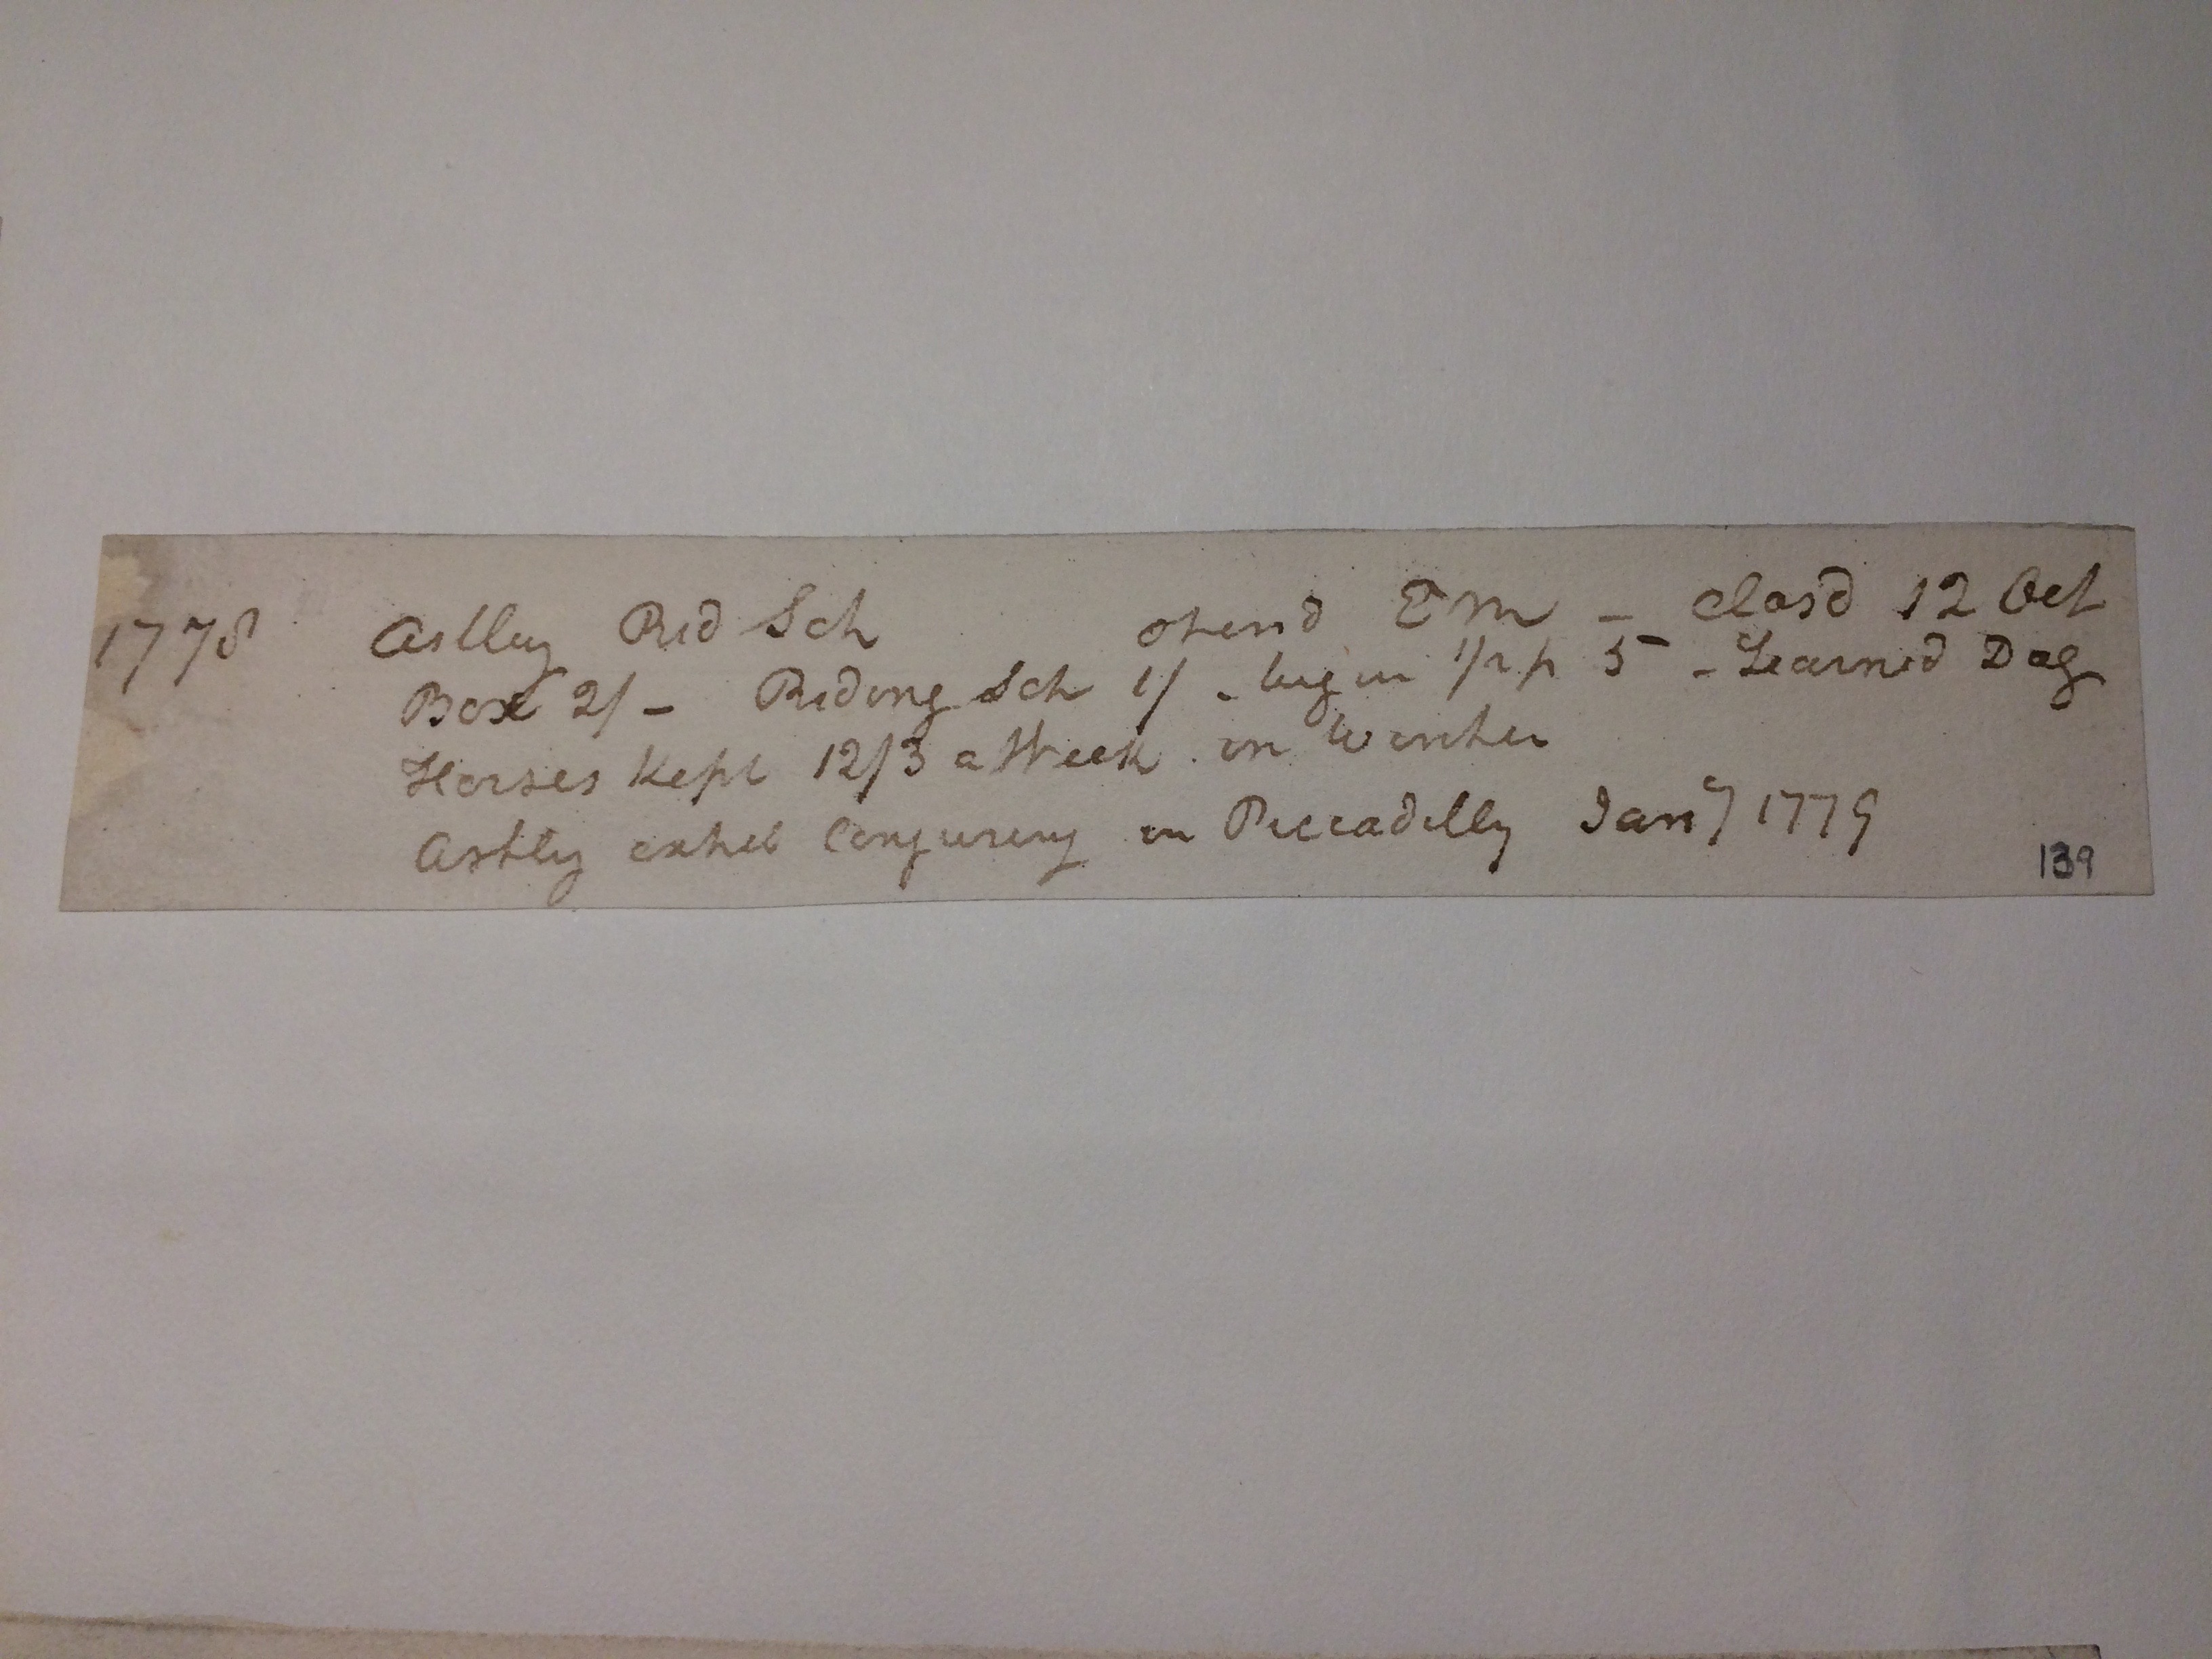 1778 Astley Rid Sch opend E M - closd 12 Oct
Box 2/- Riding Sch 1/ - begin 1/2 p 5 - Learned Dog
Horses kept 12/3 a Week in Winter
Astley exhib Conjuring in Piccadilly Jany 1779
139